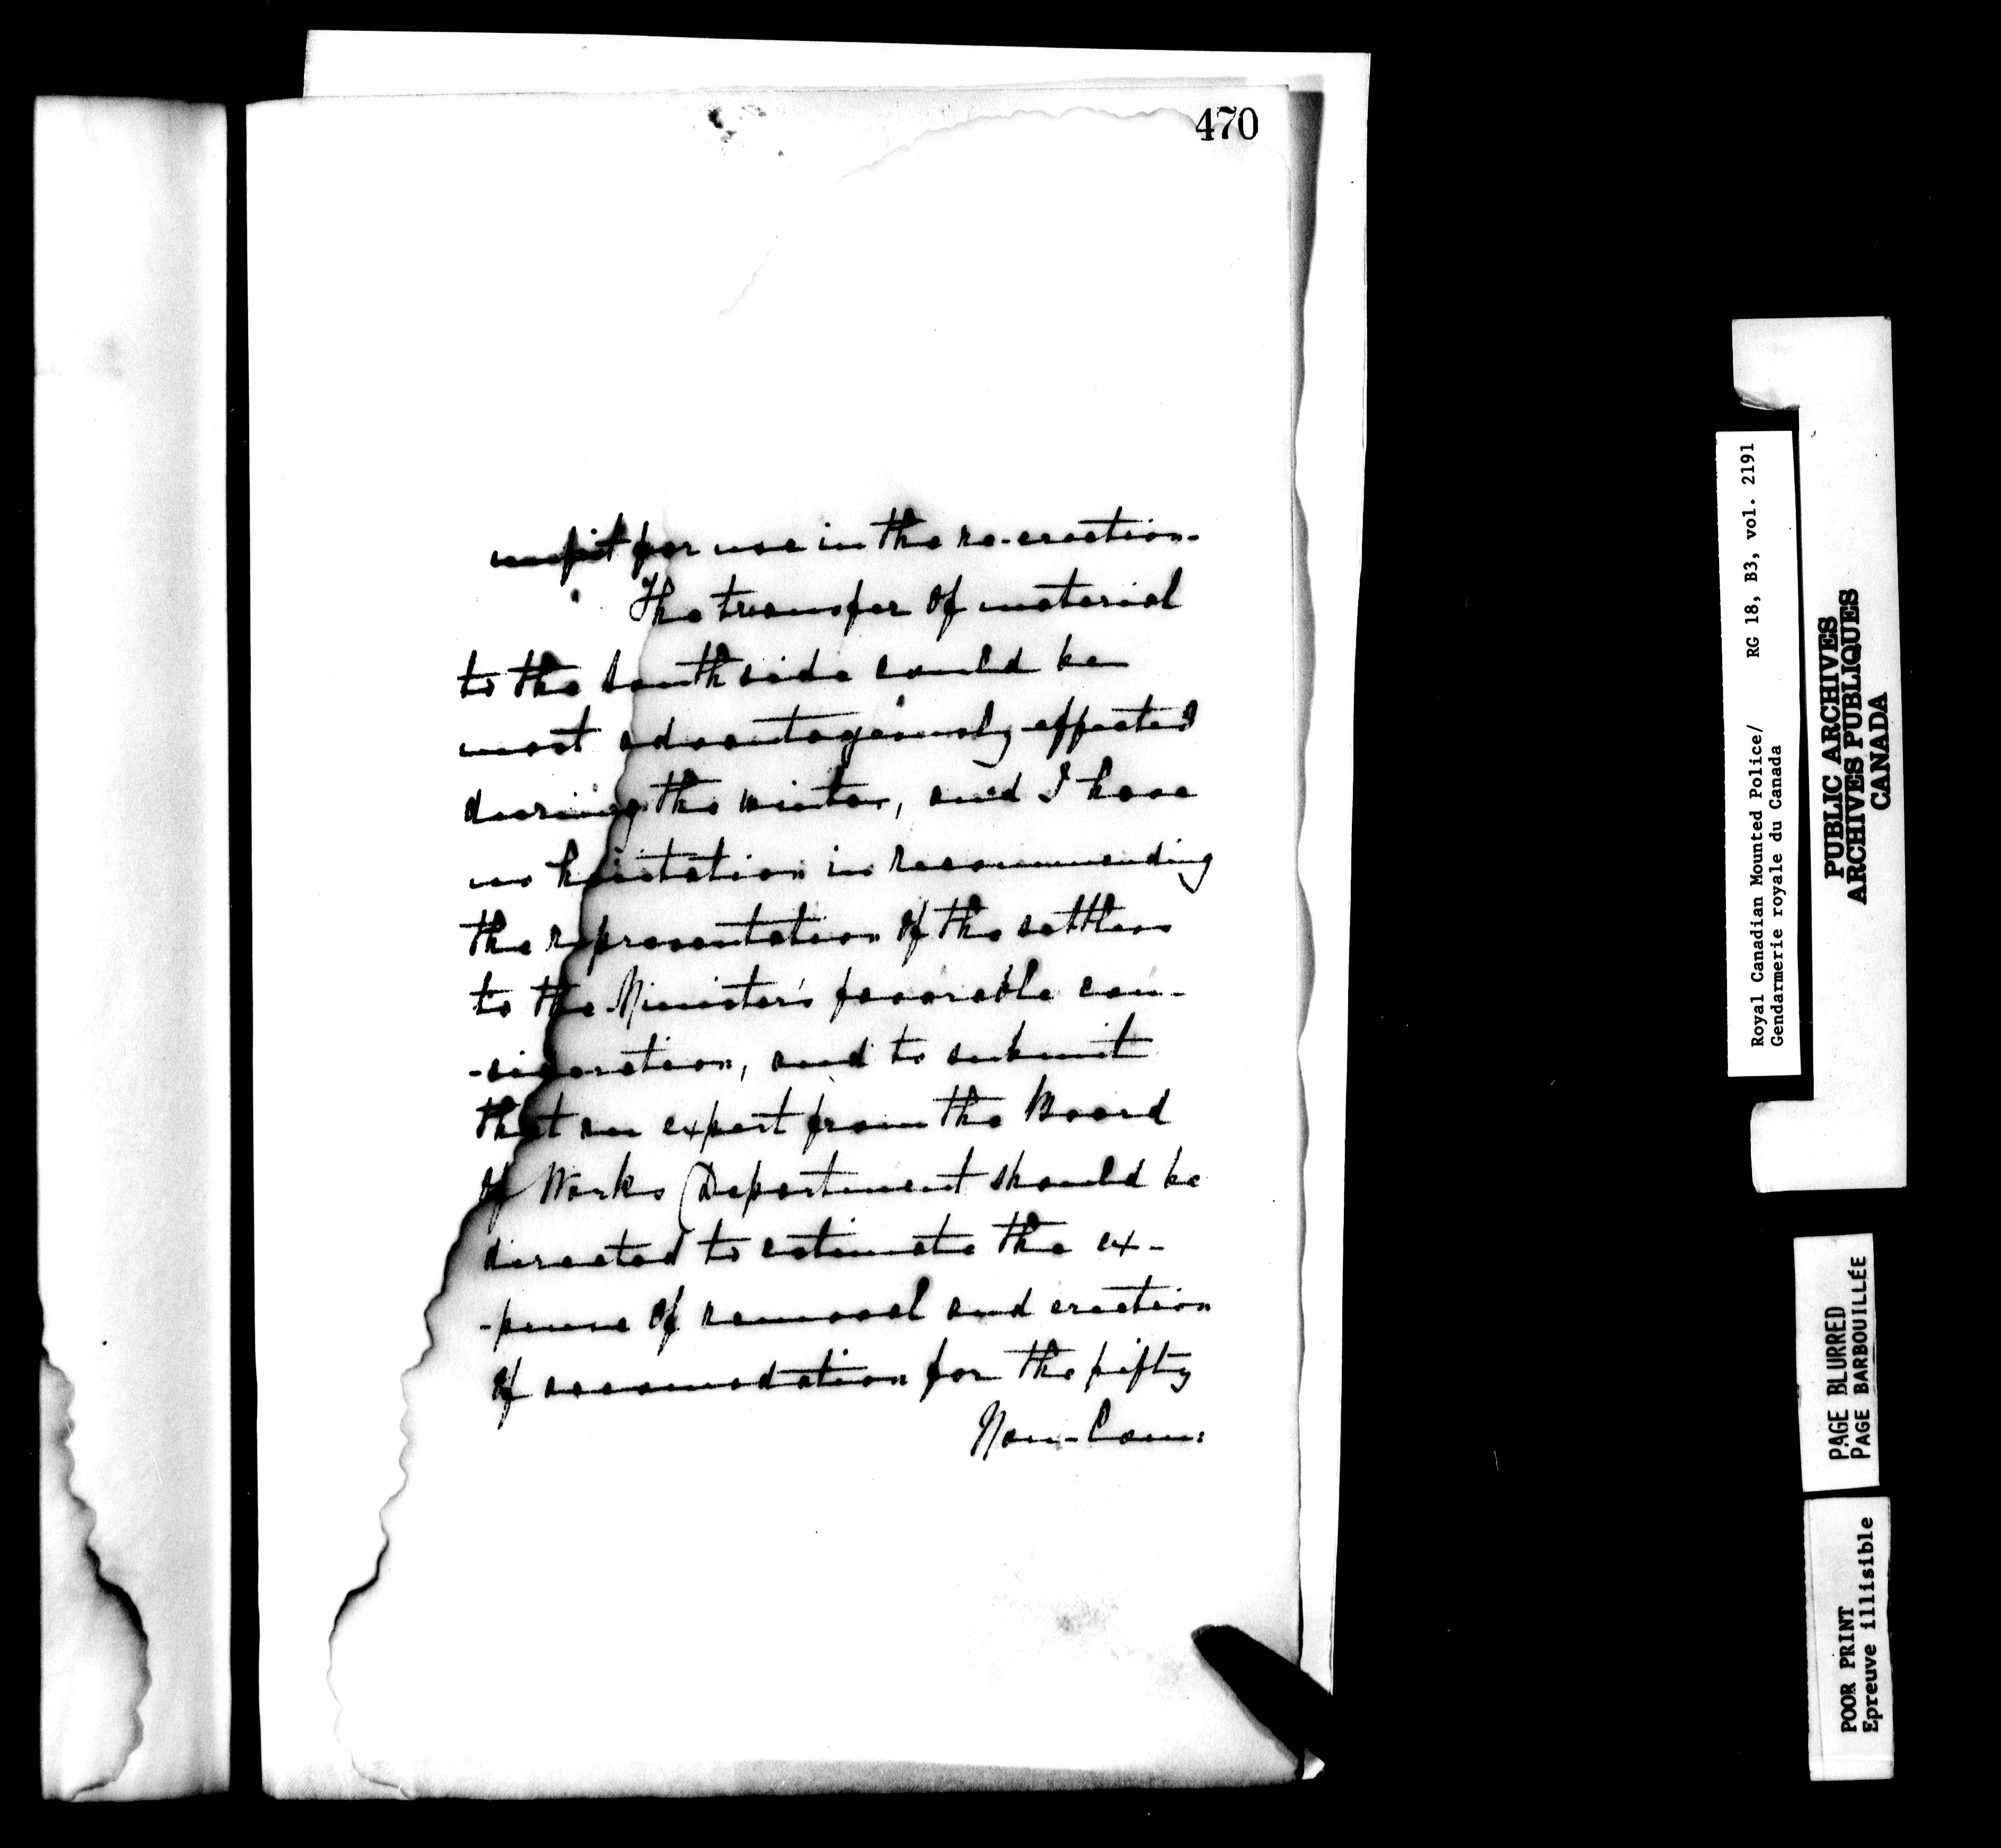 470
unfit for use in the re-erection.
The transfer of material
to the South side could be
most advantageously effected
during the winter, and I have
no hesitation in recommending
the representation of the settlers
to the Minister's favorable con-
-sideration, and to submit
that an expert from the Board
of Works Department should be
directed to estimate the ex-
-pense of removal and erection
of accomodation for the fifty
Non-Com:
Royal Canadian Mounted Police/ RG 18, B3, vol. 2191
Gendarmerie royale du Canada
PUBLIC ARCHIVES
ARCHIVES PUBLIQUES
CANADA
PAGE BLURRED
PAGE BARBOUILLÉE
POOR PRINT
Epreuve illisible